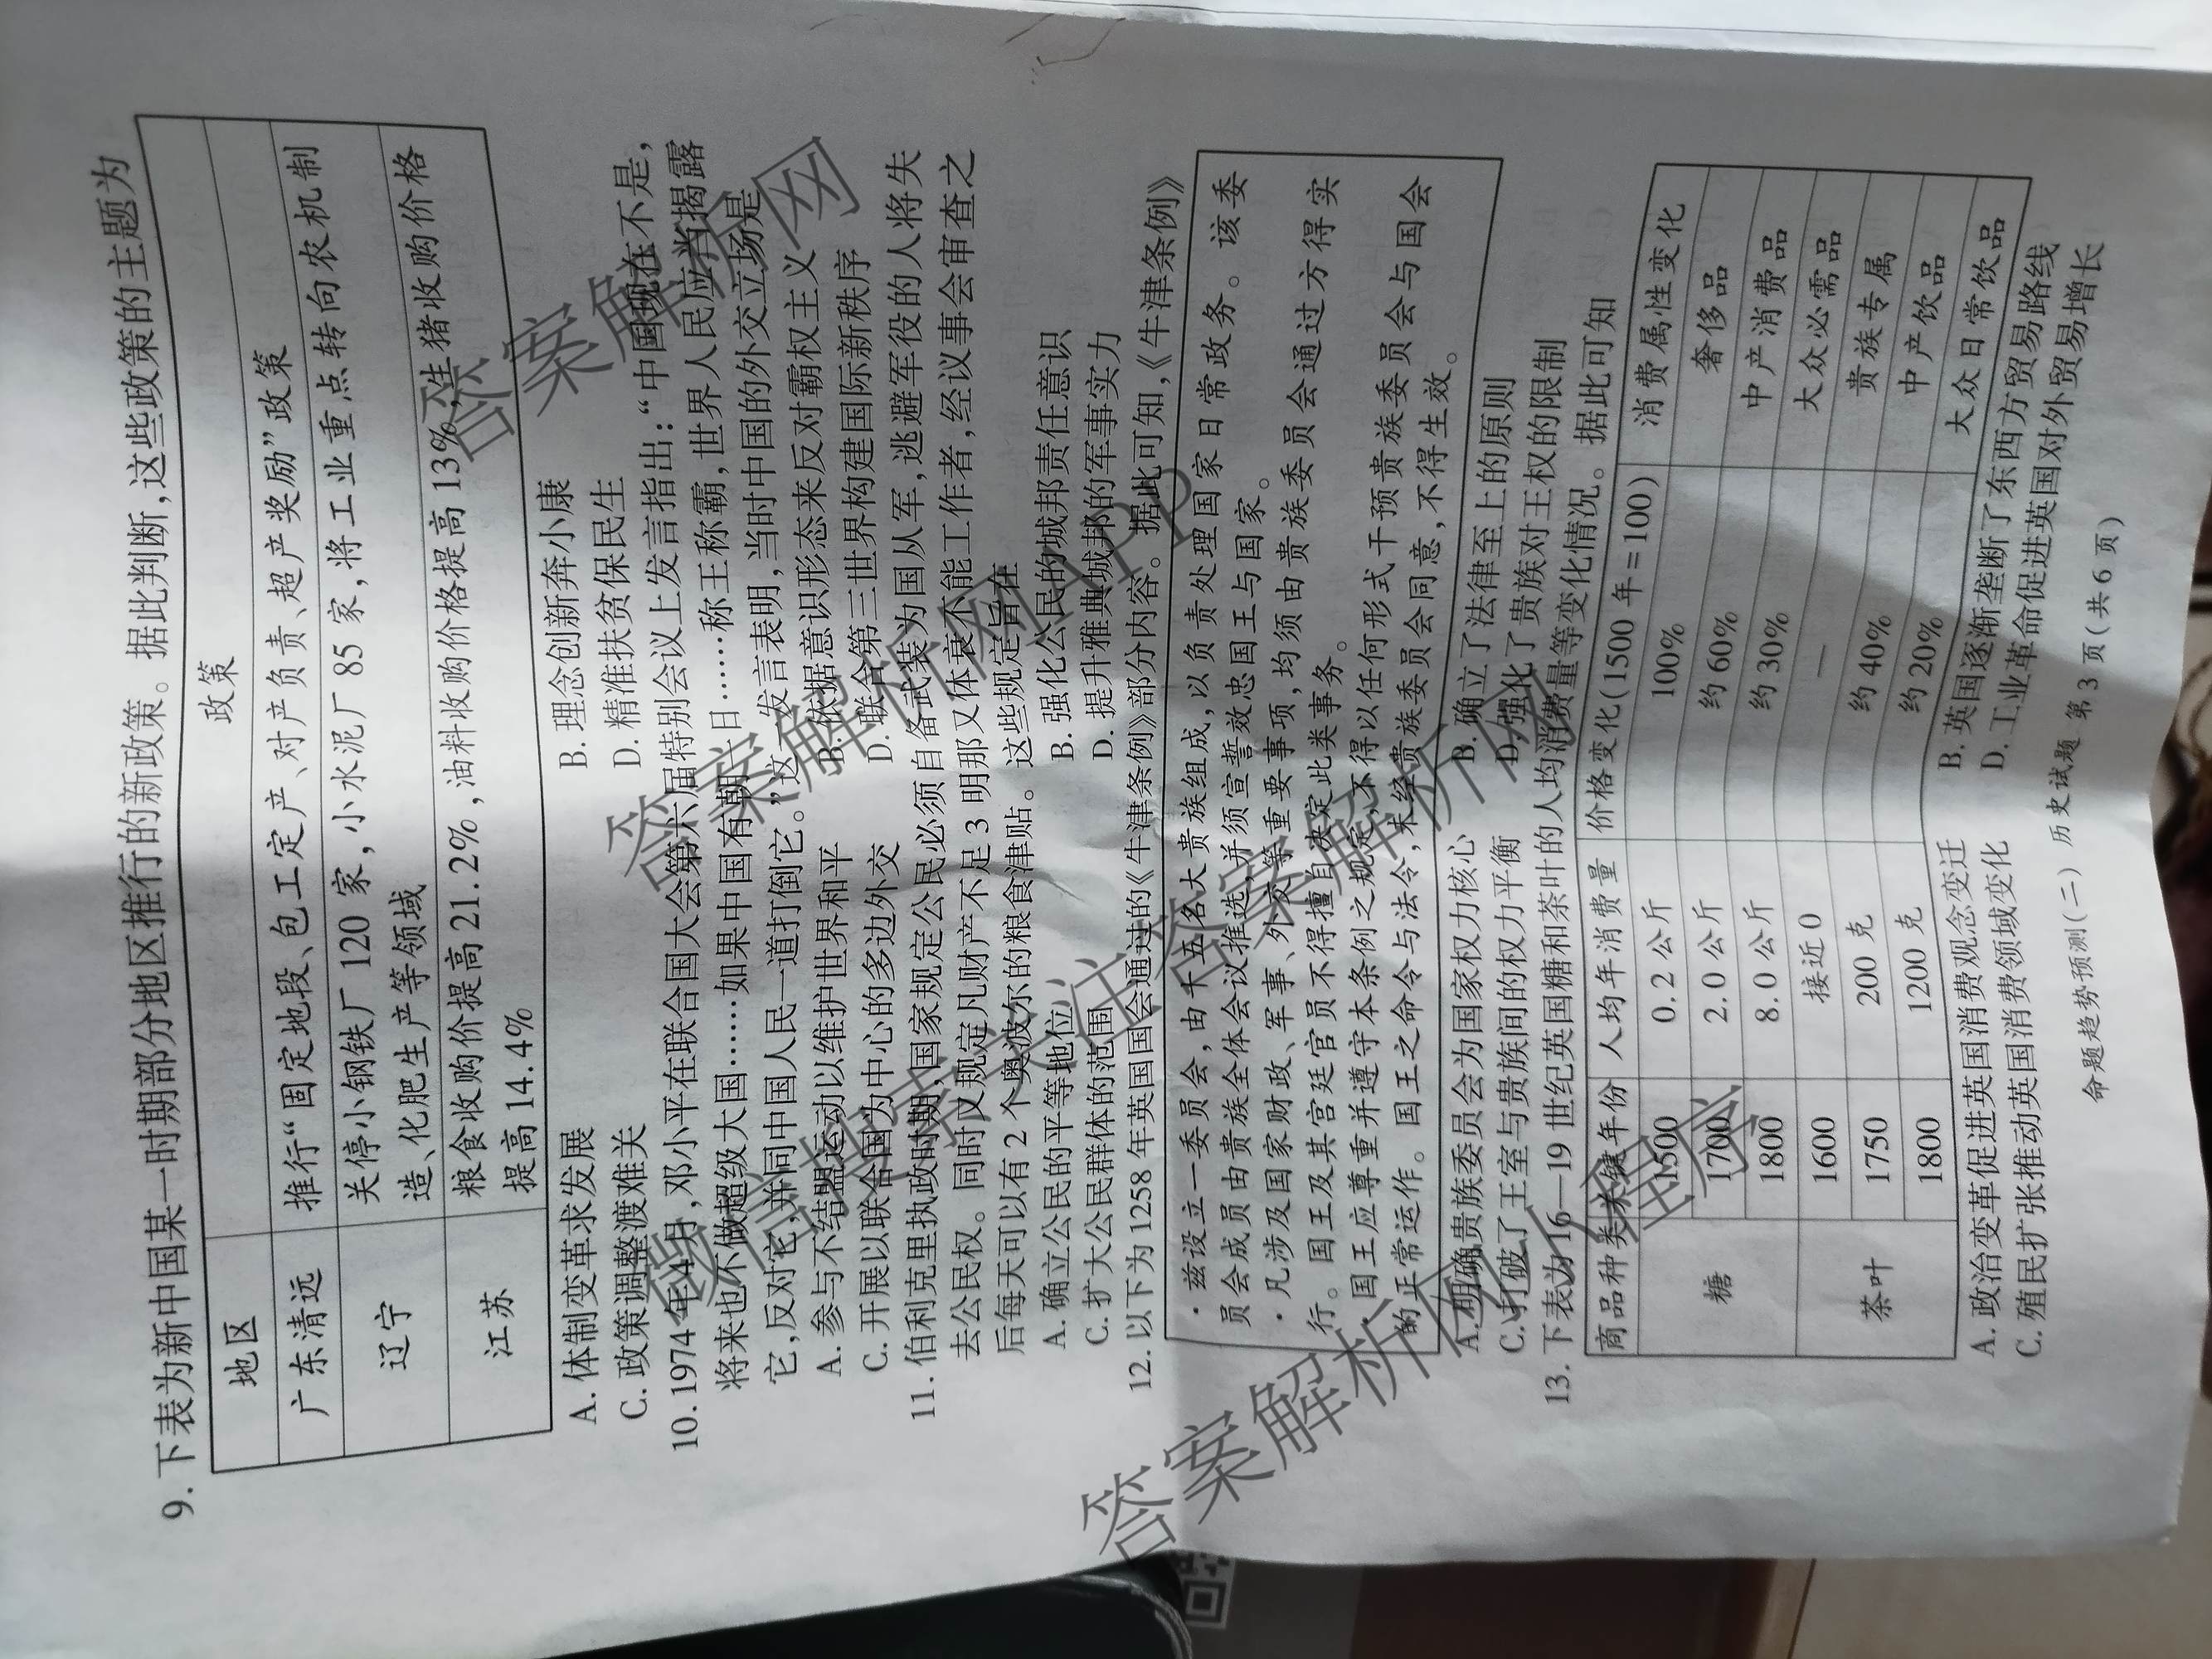 9. 下表为新中国某一时期部分地区推行的新政策。据此判断,这些政策的主题为
地区 政策
广东清远 推行“固定地段、包工定产、对产负责、超产奖励”政策
辽宁 关停小钢铁厂 120 家,小水泥厂 85 家,将工业重点转向农机制
造、化肥生产等领域
江苏 粮食收购价提高 21.2%,油料收购价格提高 13%,生猪收购价格
提高 14.4%
A. 体制变革求发展 B. 理念创新奔小康
C. 政策调整渡难关 D. 精准扶贫保民生
10. 1974 年 4 月,邓小平在联合国大会第六届特别会议上发言指出:“中国现在不是,
将来也不做超级大国……如果中国有朝一日……称王称霸,世界人民应当揭露
它,反对它,并同中国人民一道打倒它。”这一发言表明,当时中国的外交立场是
A. 参与不结盟运动以维护世界和平 B. 依据意识形态来反对霸权主义
C. 开展以联合国为中心的多边外交 D. 联合第三世界构建国际新秩序
11. 伯利克里执政时期,国家规定公民必须自备武装为国从军,逃避军役的人将失
去公民权。同时又规定凡财产不足 3 明那又体衰不能工作者,经议事会审查之
后每天可以有 2 个奥波尔的粮食津贴。这些规定旨在
A. 确立公民的平等地位 B. 强化公民的城邦责任意识
C. 扩大公民群体的范围 D. 提升雅典城邦的军事实力
12. 以下为 1258 年英国国会通过的《牛津条例》部分内容。据此可知,《牛津条例》
·兹设立一委员会,由十五名大贵族组成,以负责处理国家日常政务。该委
员会成员由贵族全体会议推选,并须宣誓效忠国王与国家。
·凡涉及国家财政、军事、外交等重要事项,均须由贵族委员会通过方得实
行。国王及其宫廷官员不得擅自决定此类事务。
·国王应尊重并遵守本条例之规定,不得以任何形式干预贵族委员会与国会
的正常运作。国王之命令与法令,未经贵族委员会同意,不得生效。
A. 明确贵族委员会为国家权力核心 B. 确立了法律至上的原则
C. 打破了王室与贵族间的权力平衡 D. 强化了贵族对王权的限制
13. 下表为 16—19 世纪英国糖和茶叶的人均消费量等变化情况。据此可知
商品种类 关键年份 人均年消费量 价格变化(1500 年=100) 消费属性变化
糖 1500 0.2 公斤 100% 奢侈品
1700 2.0 公斤 约 60% 中产消费品
1800 8.0 公斤 约 30% 大众必需品
茶叶 1600 接近 0 — 贵族专属
1750 200 克 约 40% 中产饮品
1800 1200 克 约 20% 大众日常饮品
A. 政治变革促进英国消费观念变迁 B. 英国逐渐垄断了东西方贸易路线
C. 殖民扩张推动英国消费领域变化 D. 工业革命促进英国对外贸易增长
命题趋势预测(二) 历史试题 第 3 页(共 6 页)
答案解析网
答案解析网APP
答案解析网